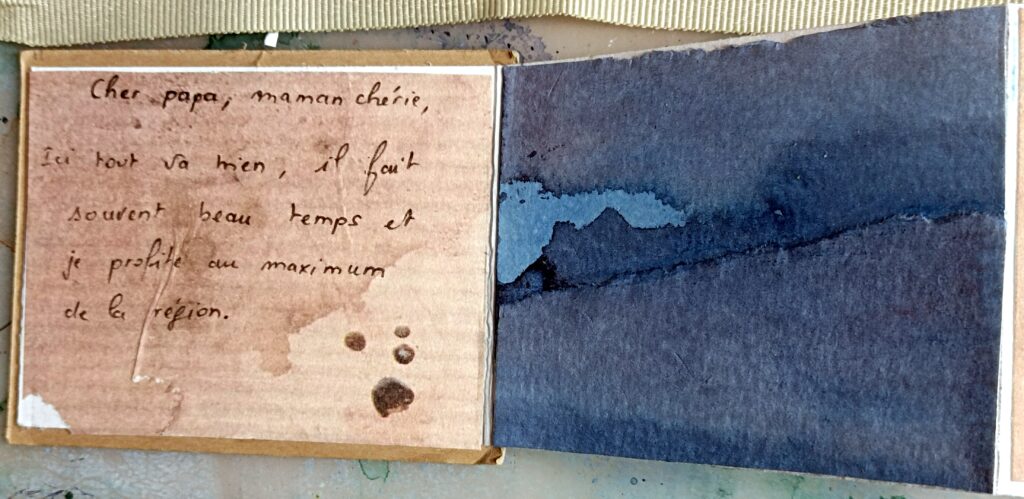 Cher papa, maman chérie,
Ici tout va bien, il fait
souvent beau temps et
je profite au maximum
de la région.